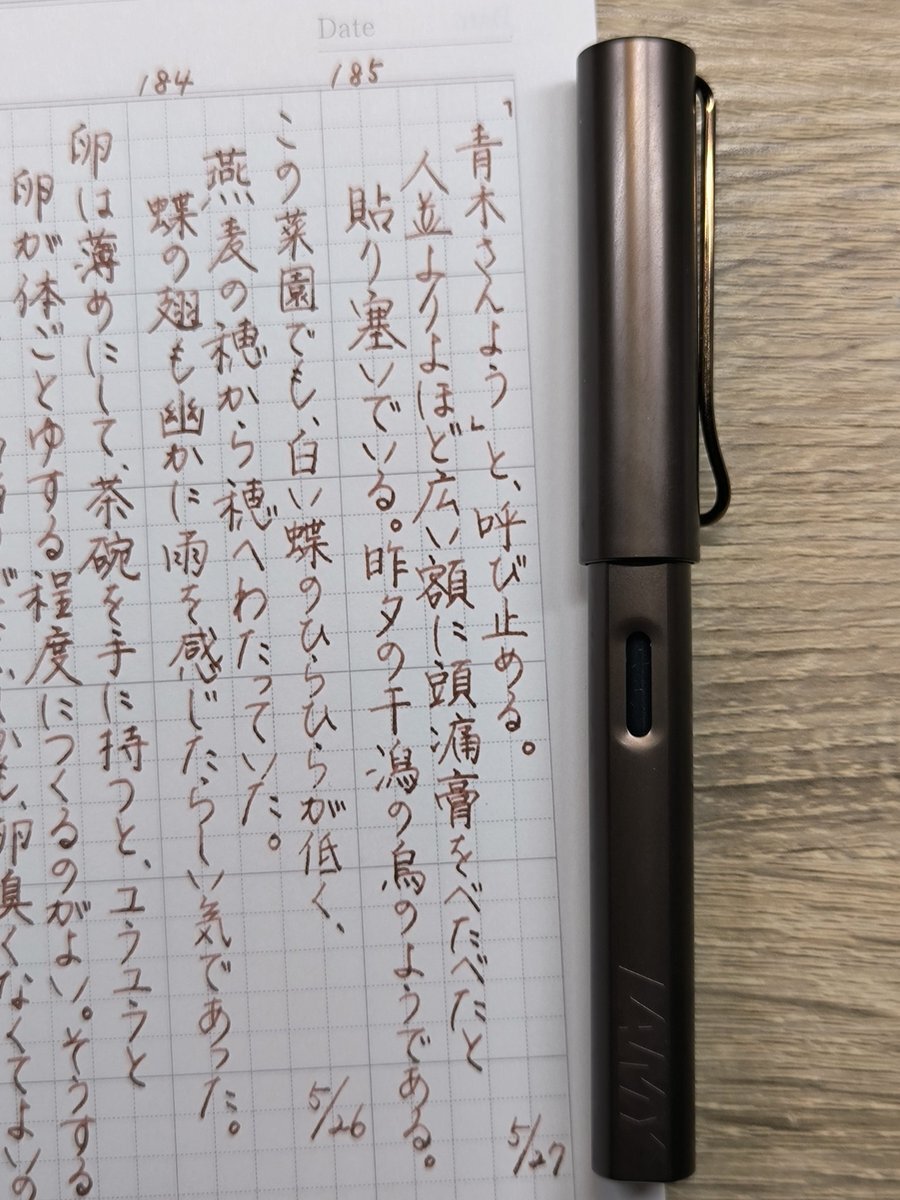 Date
185
「青木さんよう」と、呼び止める。
人並よりよほど広い額に頭痛膏をべたべたと
貼り塞いでいる。昨夕の干潟の烏のようである。
5/27
184
この菜園でも、白い蝶のひらひらが低く、
燕麦の穂から穂へわたっていた。
蝶の翅も幽かに雨を感じたらしい気であった。
5/26
卵は薄めにして、茶碗を手に持つと、ユラユラと
卵が体ごとゆする程度につくるのがよい。そうする
卵臭くなくてよいの
LAMY